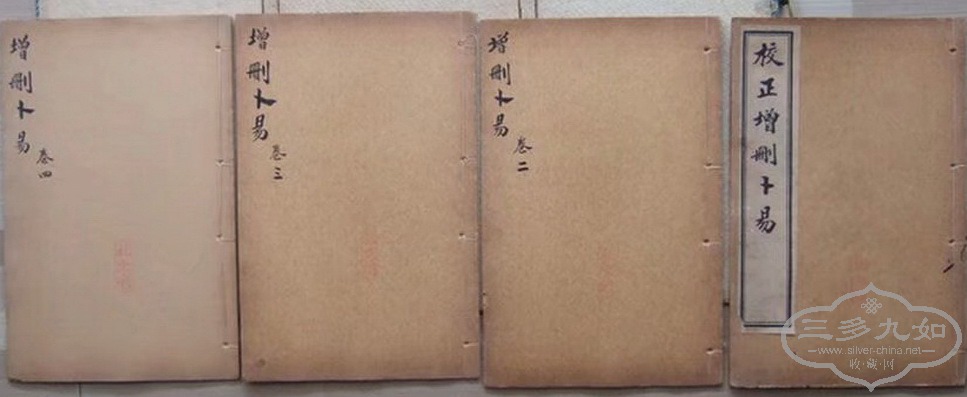 校正增刪卜易
增刪卜易
卷二
增刪卜易
卷三
增刪卜易
卷四
三多九如
www.silver-china.net
收·藏·网